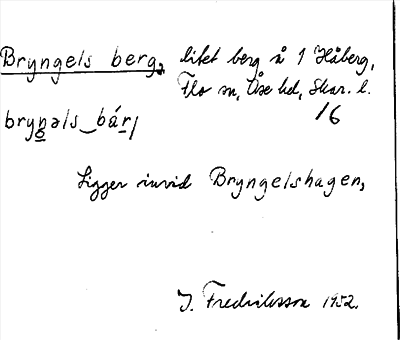 Bryngels berg, litet berg å 1 Håberg,
Flo sn, Åse hd, Skar. l.
1/6
bryŋəls‿bárj
Ligger invid Bryngelshagen,
I. Fredriksson 1952.